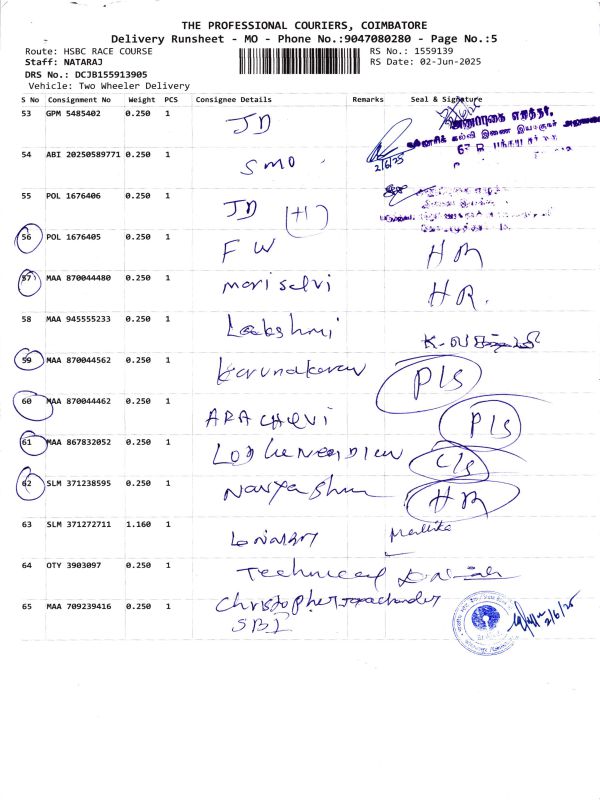 THE PROFESSIONAL COURIERS, COIMBATORE
Delivery Runsheet - MO - Phone No.:9047080280 - Page No.:5
Route: HSBC RACE COURSE RS No.: 1559139
Staff: NATARAJ RS Date: 02-Jun-2025
DRS No.: DCJB155913905
Vehicle: Two Wheeler Delivery
S No Consignment No Weight PCS Consignee Details Remarks Seal & Signature
53 GPM 5485402 0.250 1 JD
54 ABI 20250589771 0.250 1 SMO 2/6/25
55 POL 1676406 0.250 1 JD (H)
56 POL 1676405 0.250 1 FW HM
57 MAA 870044480 0.250 1 mariselvi HR.
58 MAA 945555233 0.250 1 Lakshmi
59 MAA 870044562 0.250 1 Karunakaran P/s
60 MAA 870044462 0.250 1 P/s
61 MAA 867832052 0.250 1 C/s
62 SLM 371238595 0.250 1 HM
63 SLM 371272711 1.160 1 Mallika
64 OTY 3903097 0.250 1 Technical
65 MAA 709239416 0.250 1 Christopher
SBI 2/6/25